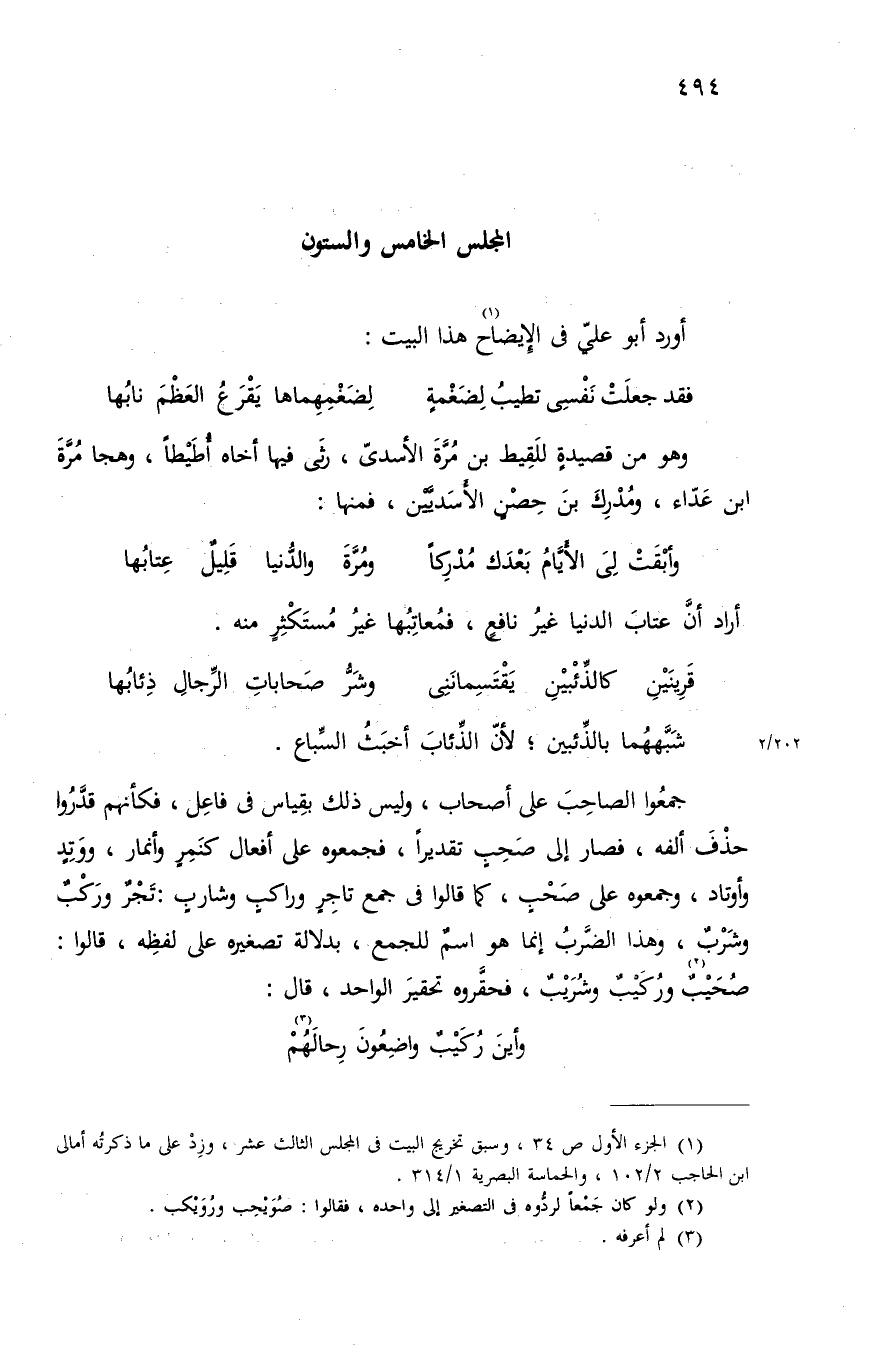 ٤٩٤
المجلس الخامس والستون
أورد أبو عليّ فى الإيضاح(١) هذا البيت :
فقد جعلَتْ نَفْسِى تطيبُ لِضَغْمةٍ لِضَغْمِهِماها يَقْرَعُ العَظْمَ نابُها
وهو من قصيدةٍ للَقِيط بن مُرَّةَ الأسدىّ ، رثَى فيها أخاه أُطَيْطاً ، وهجا مُرَّةَ
ابن عَدّاء ، ومُدْرِكَ بنَ حِصْنٍ الأَسَديَّيْن ، فمنها :
وأبْقَتْ لِىَ الأيَّامُ بَعْدَك مُدْرِكاً ومُرَّةَ والدُّنيا قَلِيلٌ عِتابُها
أراد أنَّ عتابَ الدنيا غيرُ نافعٍ ، فمُعاتِبُها غيرُ مُستَكْثِرٍ منه .
قَرِينَيْنِ كالذِّئْبَيْنِ يَقْتَسِمانَنِى وشَرُّ صَحاباتِ الرِّجالِ ذِئابُها
شَبَّههُما بالذِّئبين ؛ لأنّ الذِّئابَ أخبَثُ السِّباع . ٢/٢٠٢
جمعُوا الصاحِبَ على أصحاب ، وليس ذلك بقِياس فى فاعِل ، فكأنهم قدَّرُوا
حذْفَ ألفه ، فصار إلى صَحِبٍ تقديراً ، فجمعوه على أفعال كنَمِرٍ وأنمار ، ووَتِدٍ
وأوتاد ، وجمعوه على صَحْبٍ ، كما قالوا فى جمع تاجِرٍ وراكبٍ وشاربٍ : تَجْرٌ ورَكْبٌ
وشَرْبٌ ، وهذا الضَّربُ إنما هو اسمٌ للجمع ، بدلالة تصغيره على لفظِه ، قالوا :
صُحَيْبٌ(٢) ورُكَيْبٌ وشُرَيْبٌ ، فحقَّروه تحقيرَ الواحد ، قال :
وأينَ رُكَيْبٌ واضِعُونَ رِحالَهُمْ(٣)
(١) الجزء الأول ص ٣٤ ، وسبق تخريج البيت فى المجلس الثالث عشر ، وزِدْ على ما ذكرتُه أمالى
ابن الحاجب ١٠٢/٢ ، والحماسة البصرية ٣١٤/١ .
(٢) ولو كان جَمْعاً لردُّوه فى التصغير إلى واحده ، فقالوا : صُوَيْحِب ورُوَيْكب .
(٣) لم أعرفه .